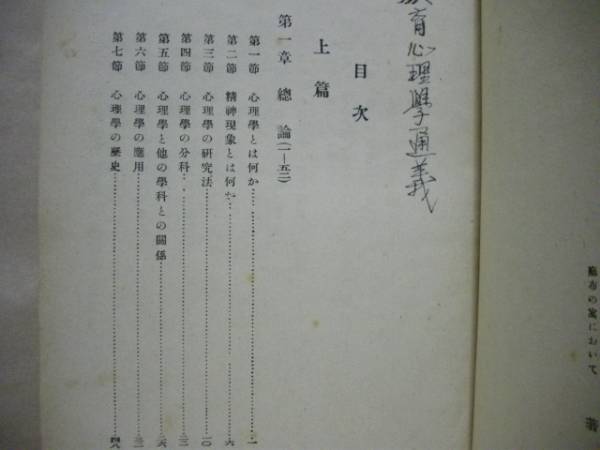 麻布の寓において
著
育心理學通義
目次
上篇
第一章 總論(一—五三)
第一節 心理學とは何か………一
第二節 精神現象とは何か………六
第三節 心理學の研究法………一〇
第四節 心理學の分科………
第五節 心理學と他の學科との關係………
第六節 心理學の應用………
第七節 心理學の歷史………四八